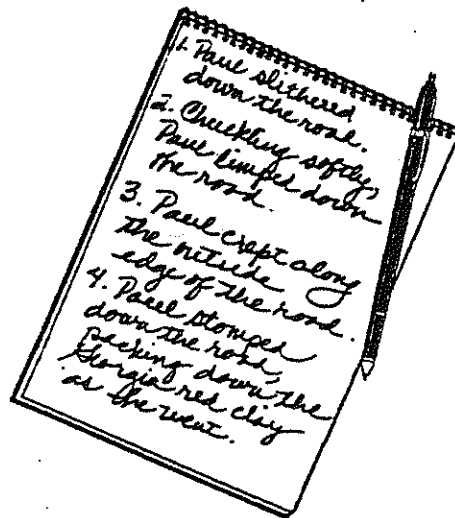 1. Paul slithered
down the road.
2. Chuckling softly,
Paul limped down
the road.
3. Paul crept along
the outside
edge of the road.
4. Paul stomped
down the road,
packing down the
Georgia red clay
as he went.